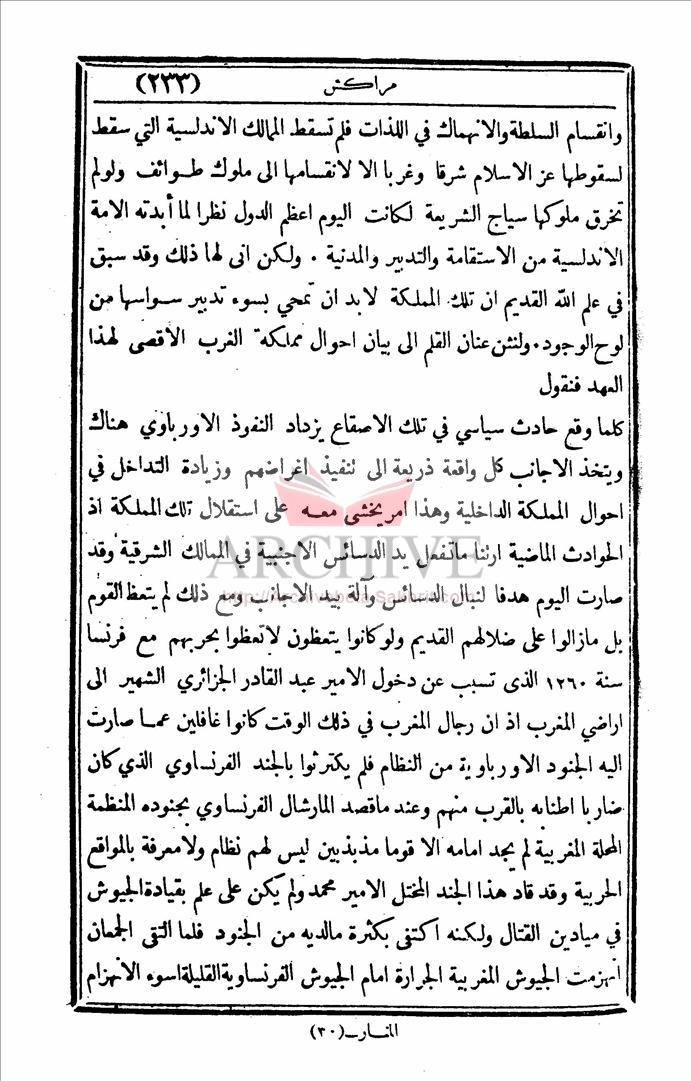 مراكش (٢٣٣)
وانقسام السلطة والانهماك في اللذات فلم تسقط الممالك الاندلسية التي سقط
لسقوطها عز الاسلام شرقا وغربا الا لانقسامها الى ملوك طوائف ولولم
تخرق ملوكها سياج الشريعة لكانت اليوم اعظم الدول نظرا لما أبدته الامة
الاندلسية من الاستقامة والتدبير والمدنية ٠ ولكن انى لها ذلك وقد سبق
في علم الله القديم ان تلك المملكة لابد ان تمحي بسوء تدبير سواسها من
لوح الوجود ٠ ولنثن عنان القلم الى بيان احوال مملكة الغرب الأقصى لهذا
العهد فنقول
كلما وقع حادث سياسي في تلك الاصقاع يزداد النفوذ الاورباوي هناك
ويتخذ الاجانب كل واقعة ذريعة الى تنفيذ اغراضهم وزيادة التداخل في
احوال المملكة الداخلية وهذا امر يخشى معه على استقلال تلك المملكة اذ
الحوادث الماضية ارتنا ماتفعل يد الدسائس الاجنبية في الممالك الشرقية وقد
ARCHIVE
صارت اليوم هدفا لنبال الدسائس وآلة بيد الاجانب ومع ذلك لم يتعظ القوم
بل مازالوا على ضلالهم القديم ولو كانوا يتعظون لاتعظوا بحربهم مع فرنسا
سنة ١٢٦٠ الذى تسبب عن دخول الامير عبد القادر الجزائري الشهير الى
اراضي المغرب اذ ان رجال المغرب في ذلك الوقت كانوا غافلين عما صارت
اليه الجنود الاورباوية من النظام فلم يكترثوا بالجند الفرنساوي الذي كان
ضاربا اطنابه بالقرب منهم وعند ماقصد المارشال الفرنساوي بجنوده المنظمة
المحلة المغربية لم يجد امامه الا قوما مذبذبين ليس لهم نظام ولا معرفة بالمواقع
الحربية وقد قاد هذا الجند المختل الامير محمد ولم يكن على علم بقيادة الجيوش
في ميادين القتال ولكنه اكتفى بكثرة مالديه من الجنود فلما التقى الجمعان
انهزمت الجيوش المغربية الجرارة امام الجيوش الفرنساوية القليلة اسوء الانهزام
المنار — (٣٠)